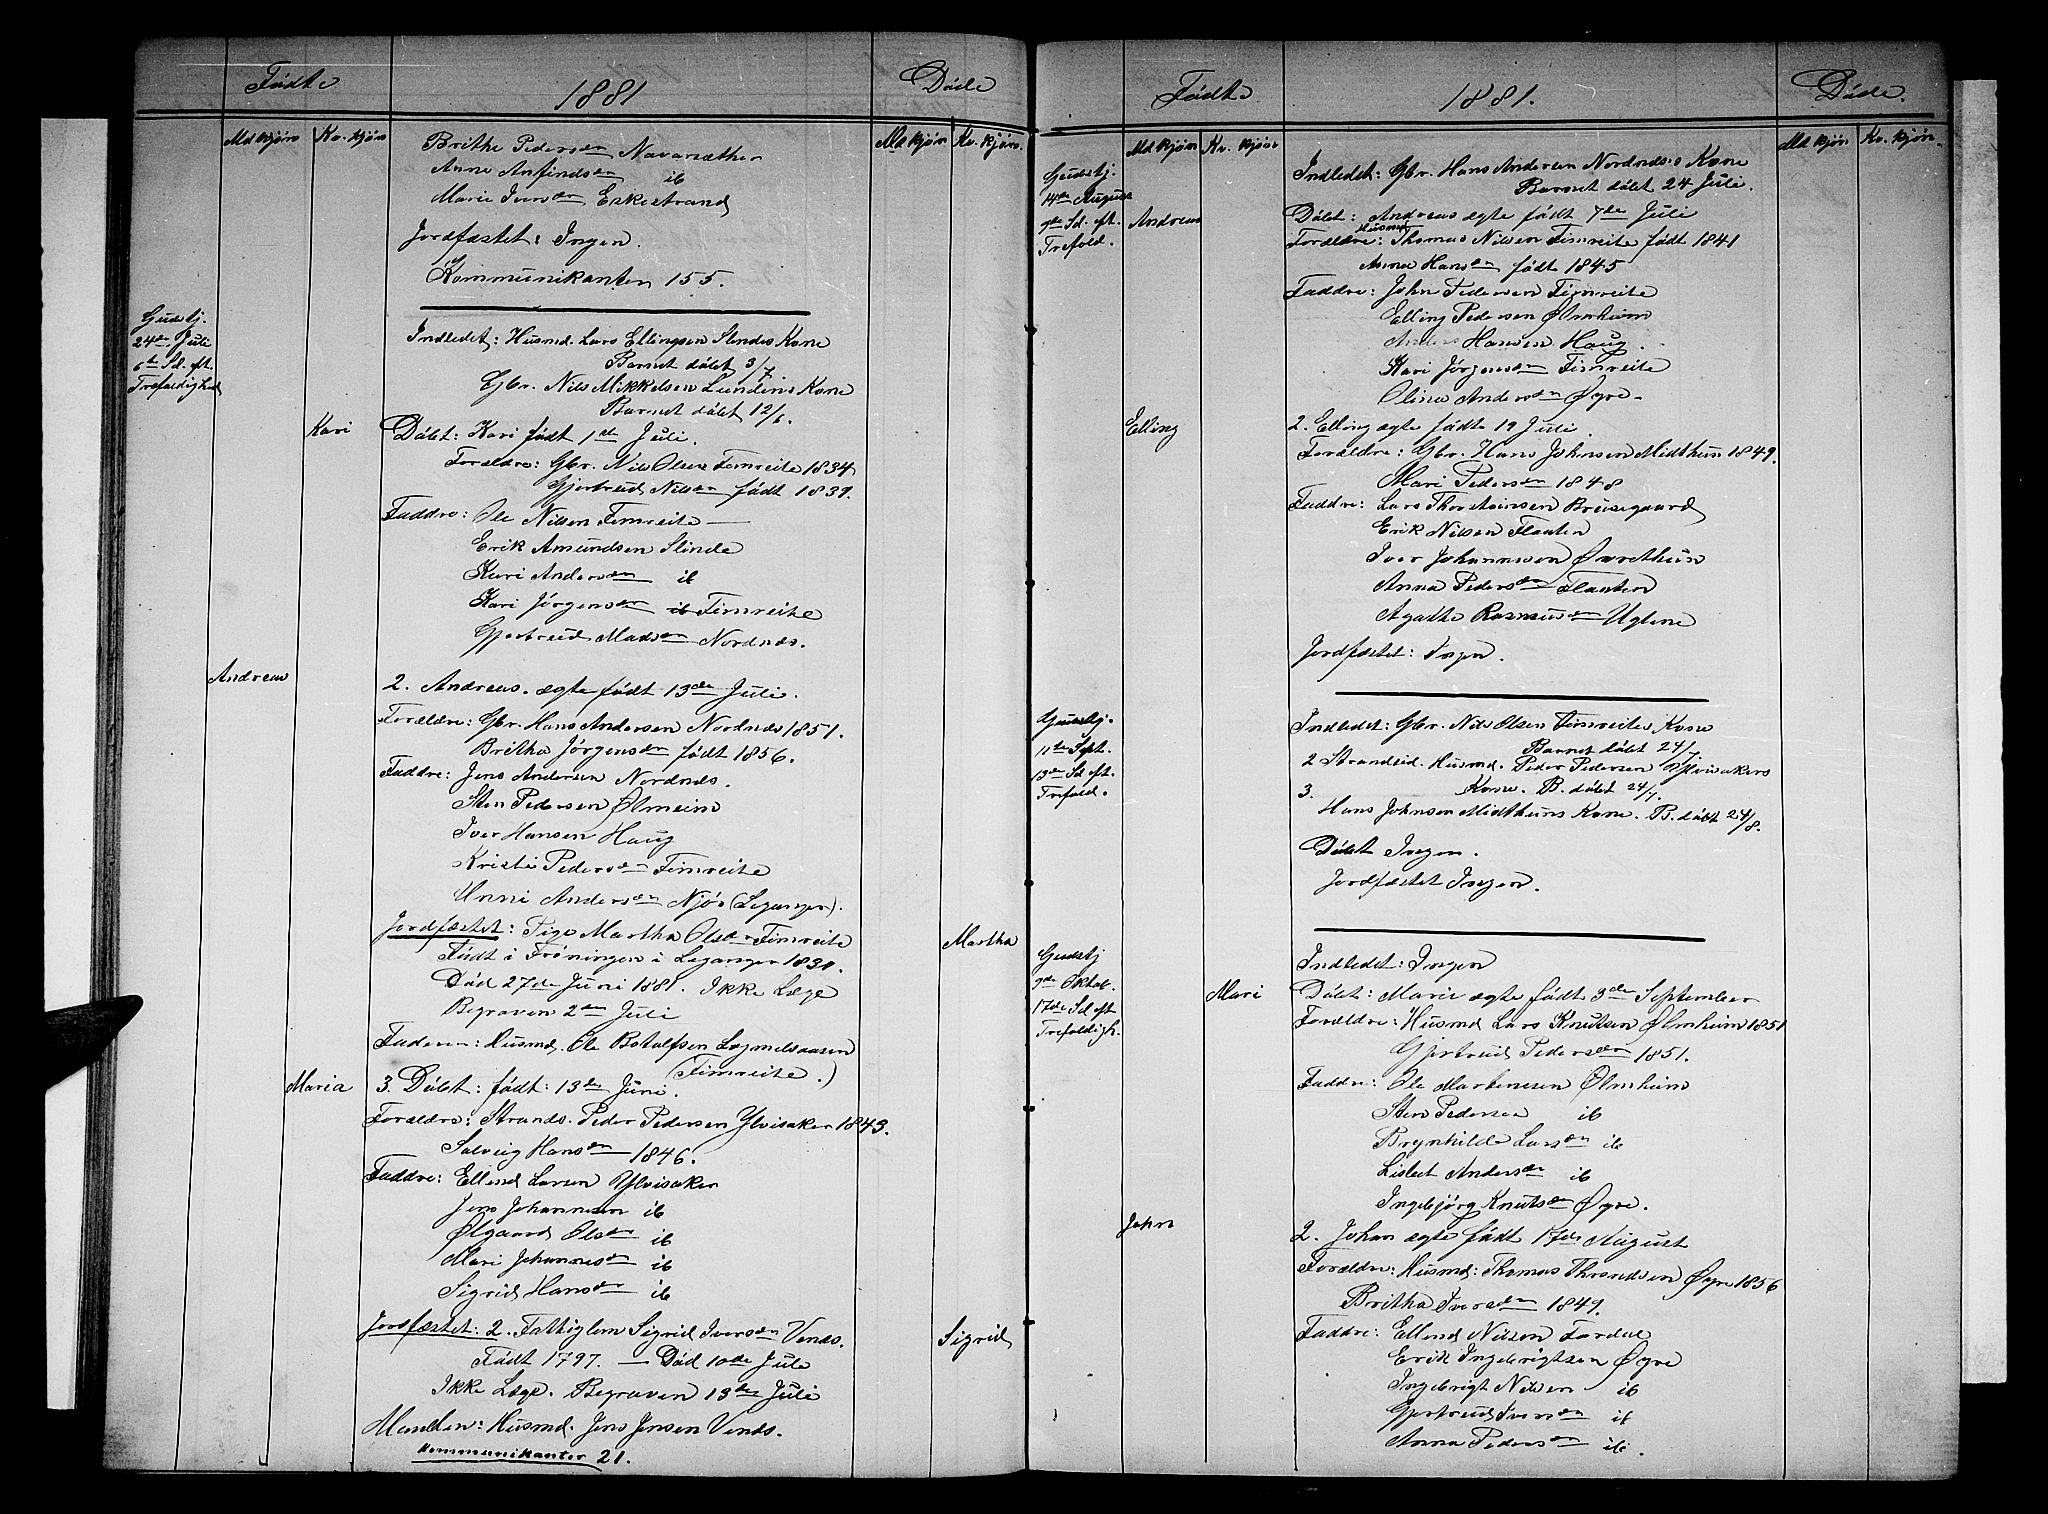 Fødte 1881 Døde
Mdkjøn Kv. kjøn Md kjøn Kv. kjøn
Brithe Pedersen Navarsæther
Anne Anfindsen ib
Marie Iversen Eskestrand
Jordfæstet: Ingen.
Kommunikanter 155.
Gudstj.
24de Juli
6te Sd. eft.
Trefoldighed
Indledet: Husmd. Lars Ellingsen Slindes Kone
Barnet døbt 3/7.
Gbr. Nils Mikkelsen Kone
Barnet døbt 12/6.
Kari Døbt: Kari født 1ste Juli.
Forældre: Gbr. Nils Olsen Fimreite 1834
Gjertrud Nilsen født 1839.
Faddre: Ole Nilsen Fimreite
Erik Amundsen Slinde
Kari Andersen ib
Kari Jørgensen ib Fimreite
Gjertrud Madsen Nordnæs.
Andreas 2. Andreas. ægte født 13de Juli.
Forældre: Gbr. Hans Andersen Nordnæs 1851.
Britha Jørgensen født 1856.
Faddre: Jens Andersen Nordnæs.
Sten Pedersen Ølmeim
Iver Hansen Haug
Kristi Pedersen Fimreite
Unni Andersen Njøs (Leganger).
Jordfæstet: Pige Martha Olsen Fimreite Martha
Født i Frøningen i Leganger
Død 27de Juni 1881. Ikke Læge
Begraven 2den Juli
Faderen: Husmd. Ole Botolfsen
(Fimreite.)
Maria 3. Døbt: født: 13de Juni.
Forældre: Strands. Peder Pedersen Ylvisaker 1843.
Solveig Hansen 1846.
Faddre: Ellend Larsen Ylvisaker
Jens Johannesen ib
Ølgaard Olsen ib
Mari Johannesen ib
Sigrid Hansen ib
Jordfæstet: 2. Fattiglem Sigrid Iversen Vends. Sigrid
Født 1797. — Død 10de Juli
Ikke Læge. Begraven 13de Juli
Manden: Husmd. Jens Jensen Vends.
Kommunikanter 21.
Fødte 1881. Døde.
Md kjøn Kv. kjøn Md kjøn Kv. kjøn.
Gudstj.
14de August
9de Sd. eft.
Trefold.
Indledet: Gbr. Hans Andersen Nordnæs's Kone
Barnet døbt 24 Juli.
Andreas Døbt: Andreas ægte født 7de Juli
Husmd
Forældre: Thomas Nilsen Fimreite født 1841
Anna Hansen født 1845
Faddre: John Pedersen Fimreite
Elling Pedersen Ølmheim
Anders Hansen Haug.
Kari Jørgensen Fimreite
Olina Andersen Øyre.
Elling 2. Elling ægte fødte 19 Juli.
Forældre: Gbr. Hans Johnsen Midthun 1849.
Mari Pedersen 1848
Faddre: Lars Thorsteinsen Breisegaard
Erik Nilsen Flaaten
Iver Johannesen Øvrethun
Anna Pedersen Flaaten
Agathe Rasmusen
Jordfæstet: Ingen.
Gudstj.
11te Sept.
13de Sd eft.
Trefold.
Indledet: Gbr. Nils Olsen Fimreites Kone
Barnet døbt 24/7
2 Strandsid. Husmd. Peder Pedersen Ylvisakers
Kone. B. døbt 24/7.
3. Hans Johnsen Midthuns Kone. B. døbt 24/8.
Døbt Ingen.
Jordfæstet Ingen.
Gudstj
9de Oktob.
17de Sd eft
Trefoldigh.
Indledet: Ingen
Mari Døbt: Marie ægte født 3de September
Forældre: Husmd Lars Knutsen Ølmheim 1851
Gjertrud Pedersen 1851.
Faddre: Ole Martinesen Ølmheim
Sten Pedersen ib
Brynhilde Larsen ib
Lisbet Andersen ib
Ingebjørg Knutsen Øyre.
John 2. Johan ægte født 17de August
Forældre: Husmd: Thomas Throndsen Øyre 1856
Britha Iversen 1849.
Faddre: Ellend Nilsen Fardal
Erik Ingebrigtsen Øyre
Ingebrigt Nilsen ib
Gjertrud Iversen ib
Anna Pedersen ib.